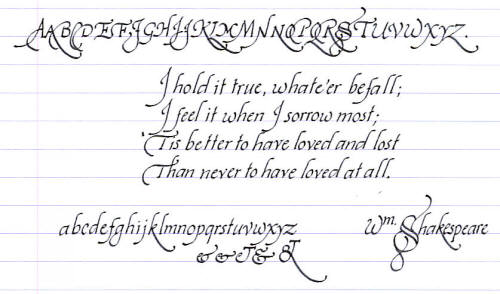 AABCDEFFGHIJKLMNNOPQRSTUVWXYZ.
I hold it true, whate'er befall;
I feel it when I sorrow most;
'Tis better to have loved and lost
Than never to have loved at all.
abcdefghijklmnopqrstuvwxyz Wm. Shakespeare
& & & & &